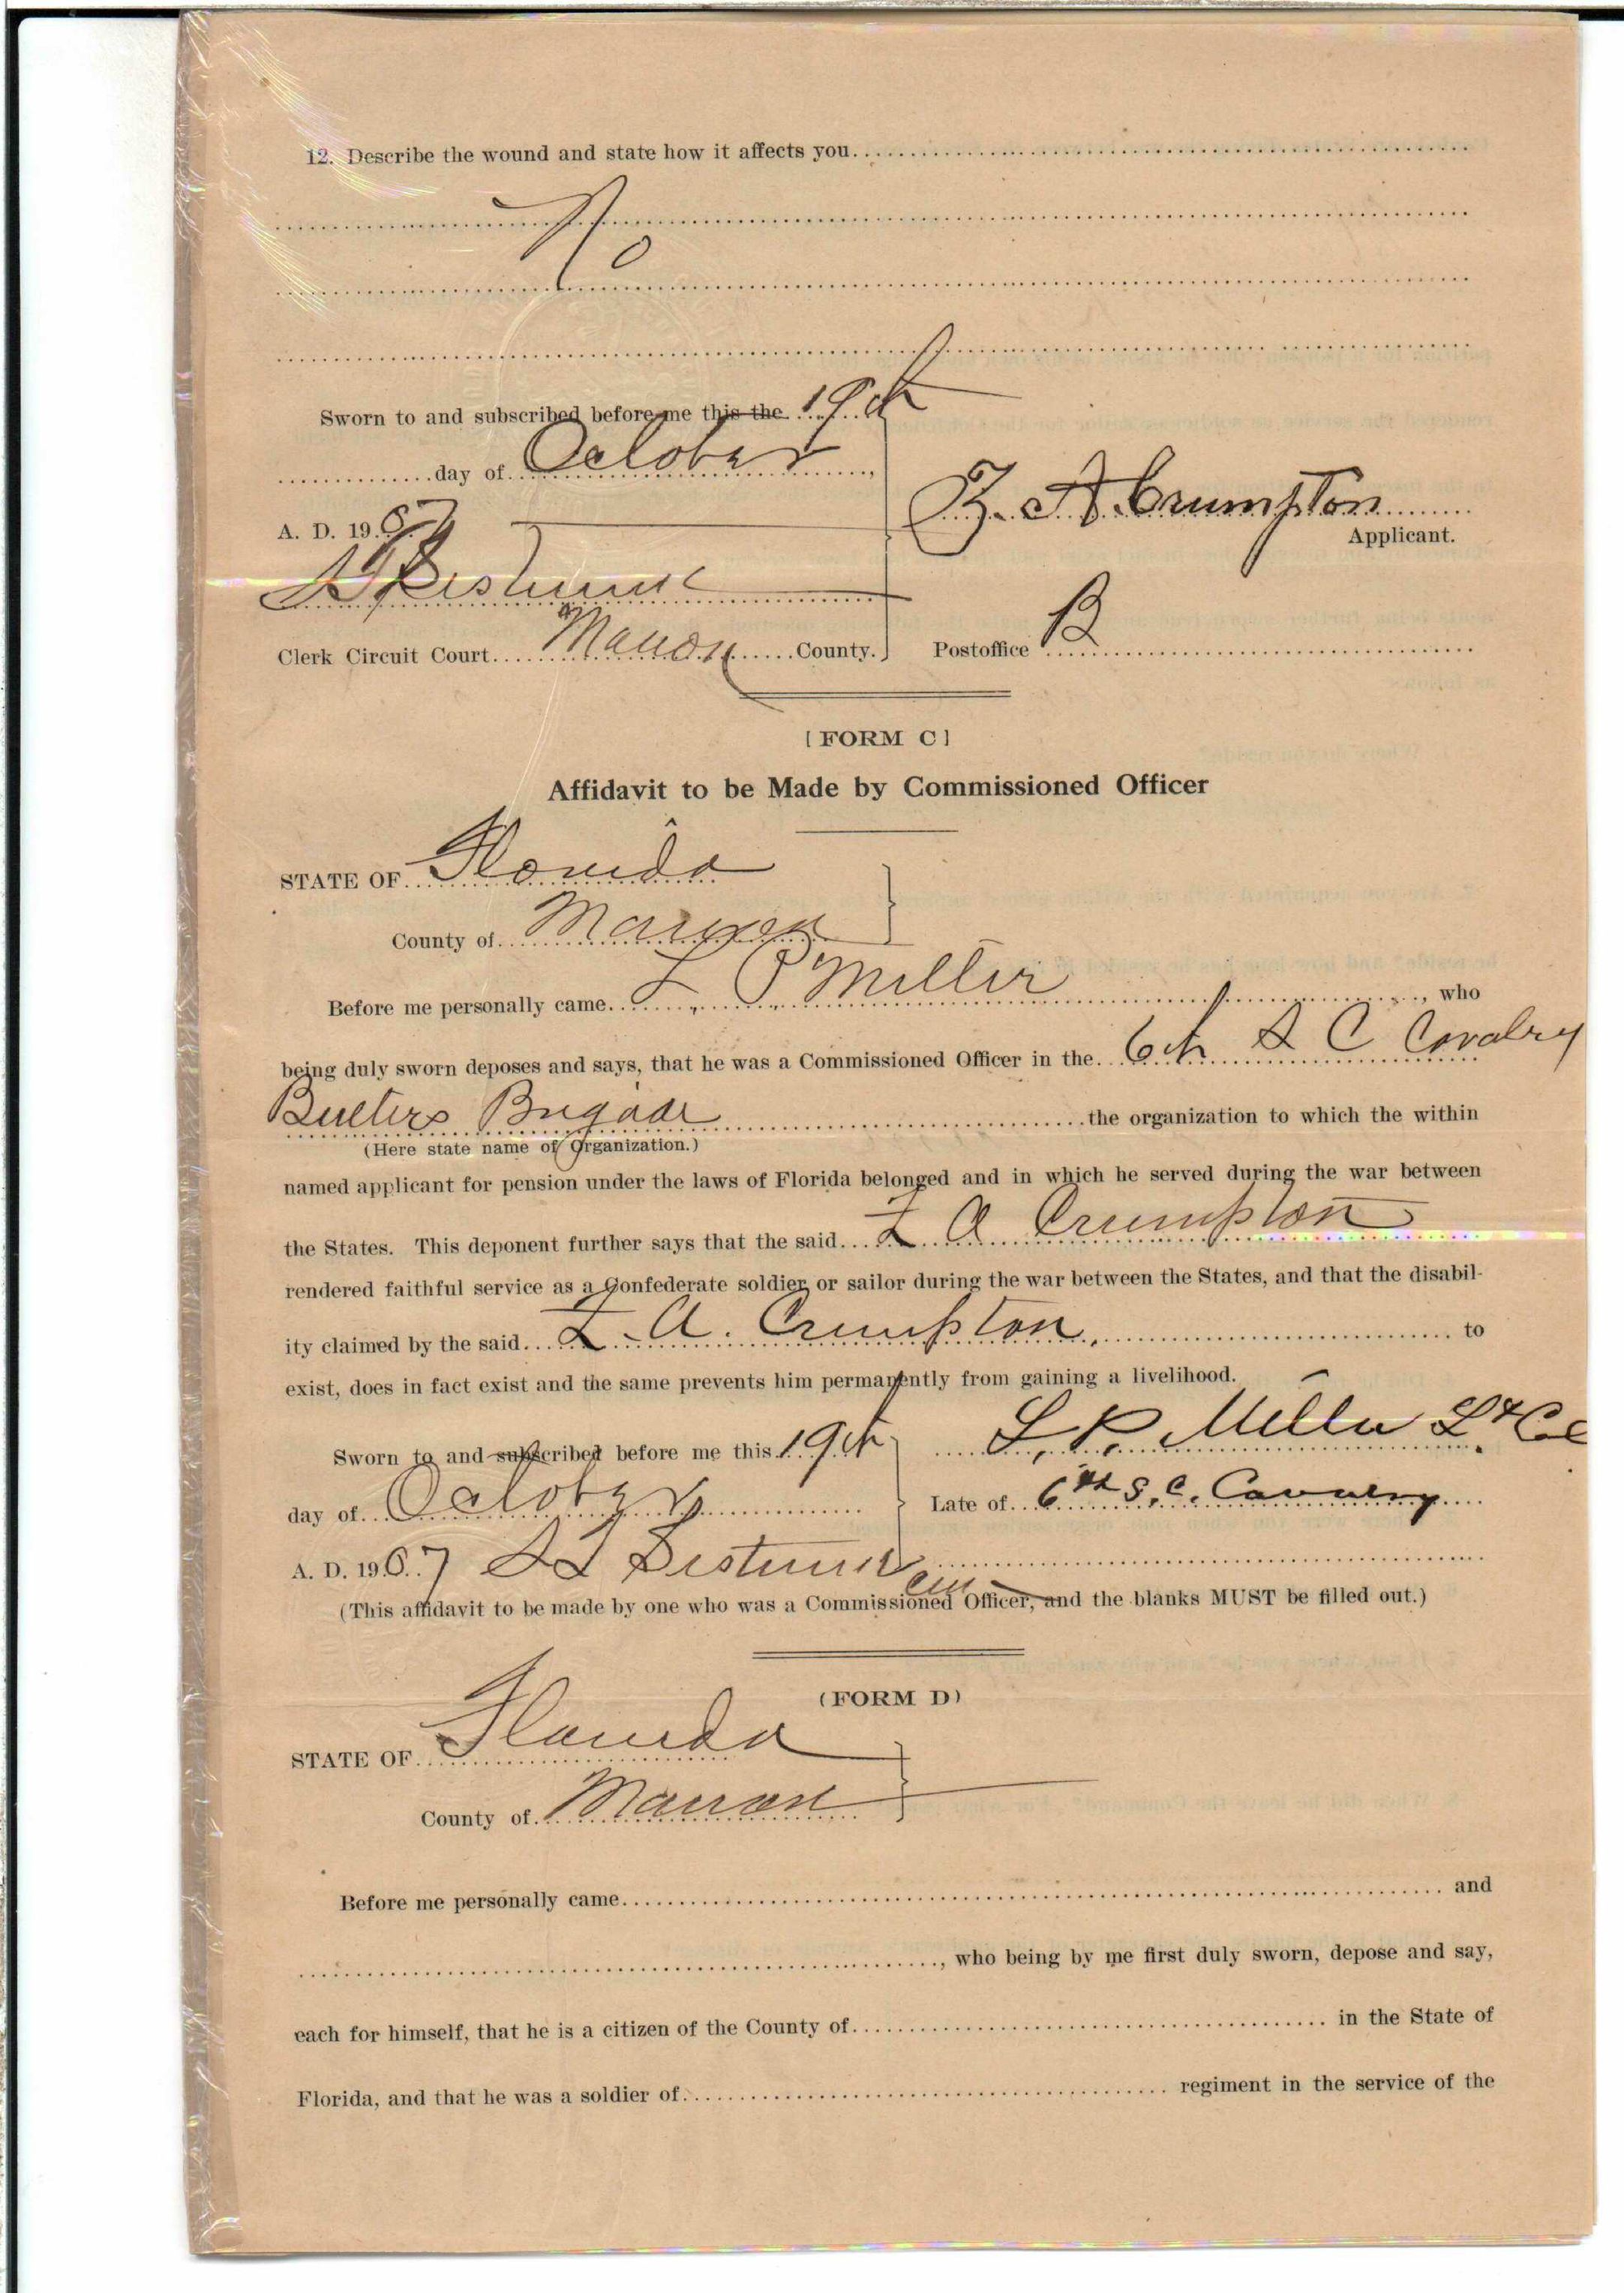 12. Describe the wound and state how it affects you
No
Sworn to and subscribed before me this the 19th
day of October
A. D. 1907
Z. A. Crumpton
Applicant.
Clerk Circuit Court Marion County.
Postoffice
[FORM C]
Affidavit to be Made by Commissioned Officer
STATE OF Florida
County of Marion
Before me personally came L P Miller, who
being duly sworn deposes and says, that he was a Commissioned Officer in the 6th S C Cavalry
Butlers Brigade the organization to which the within
(Here state name of Organization.)
named applicant for pension under the laws of Florida belonged and in which he served during the war between
the States. This deponent further says that the said Z A Crumpton
rendered faithful service as a Confederate soldier or sailor during the war between the States, and that the disabil-
ity claimed by the said Z. A. Crumpton, to
exist, does in fact exist and the same prevents him permanently from gaining a livelihood.
Sworn to and subscribed before me this 19th
L. P. Miller Lt Col
day of October
Late of 6th S. C. Cavalry
A. D. 1907
(This affidavit to be made by one who was a Commissioned Officer, and the blanks MUST be filled out.)
(FORM D)
STATE OF Florida
County of Marion
Before me personally came and
, who being by me first duly sworn, depose and say,
each for himself, that he is a citizen of the County of in the State of
Florida, and that he was a soldier of regiment in the service of the